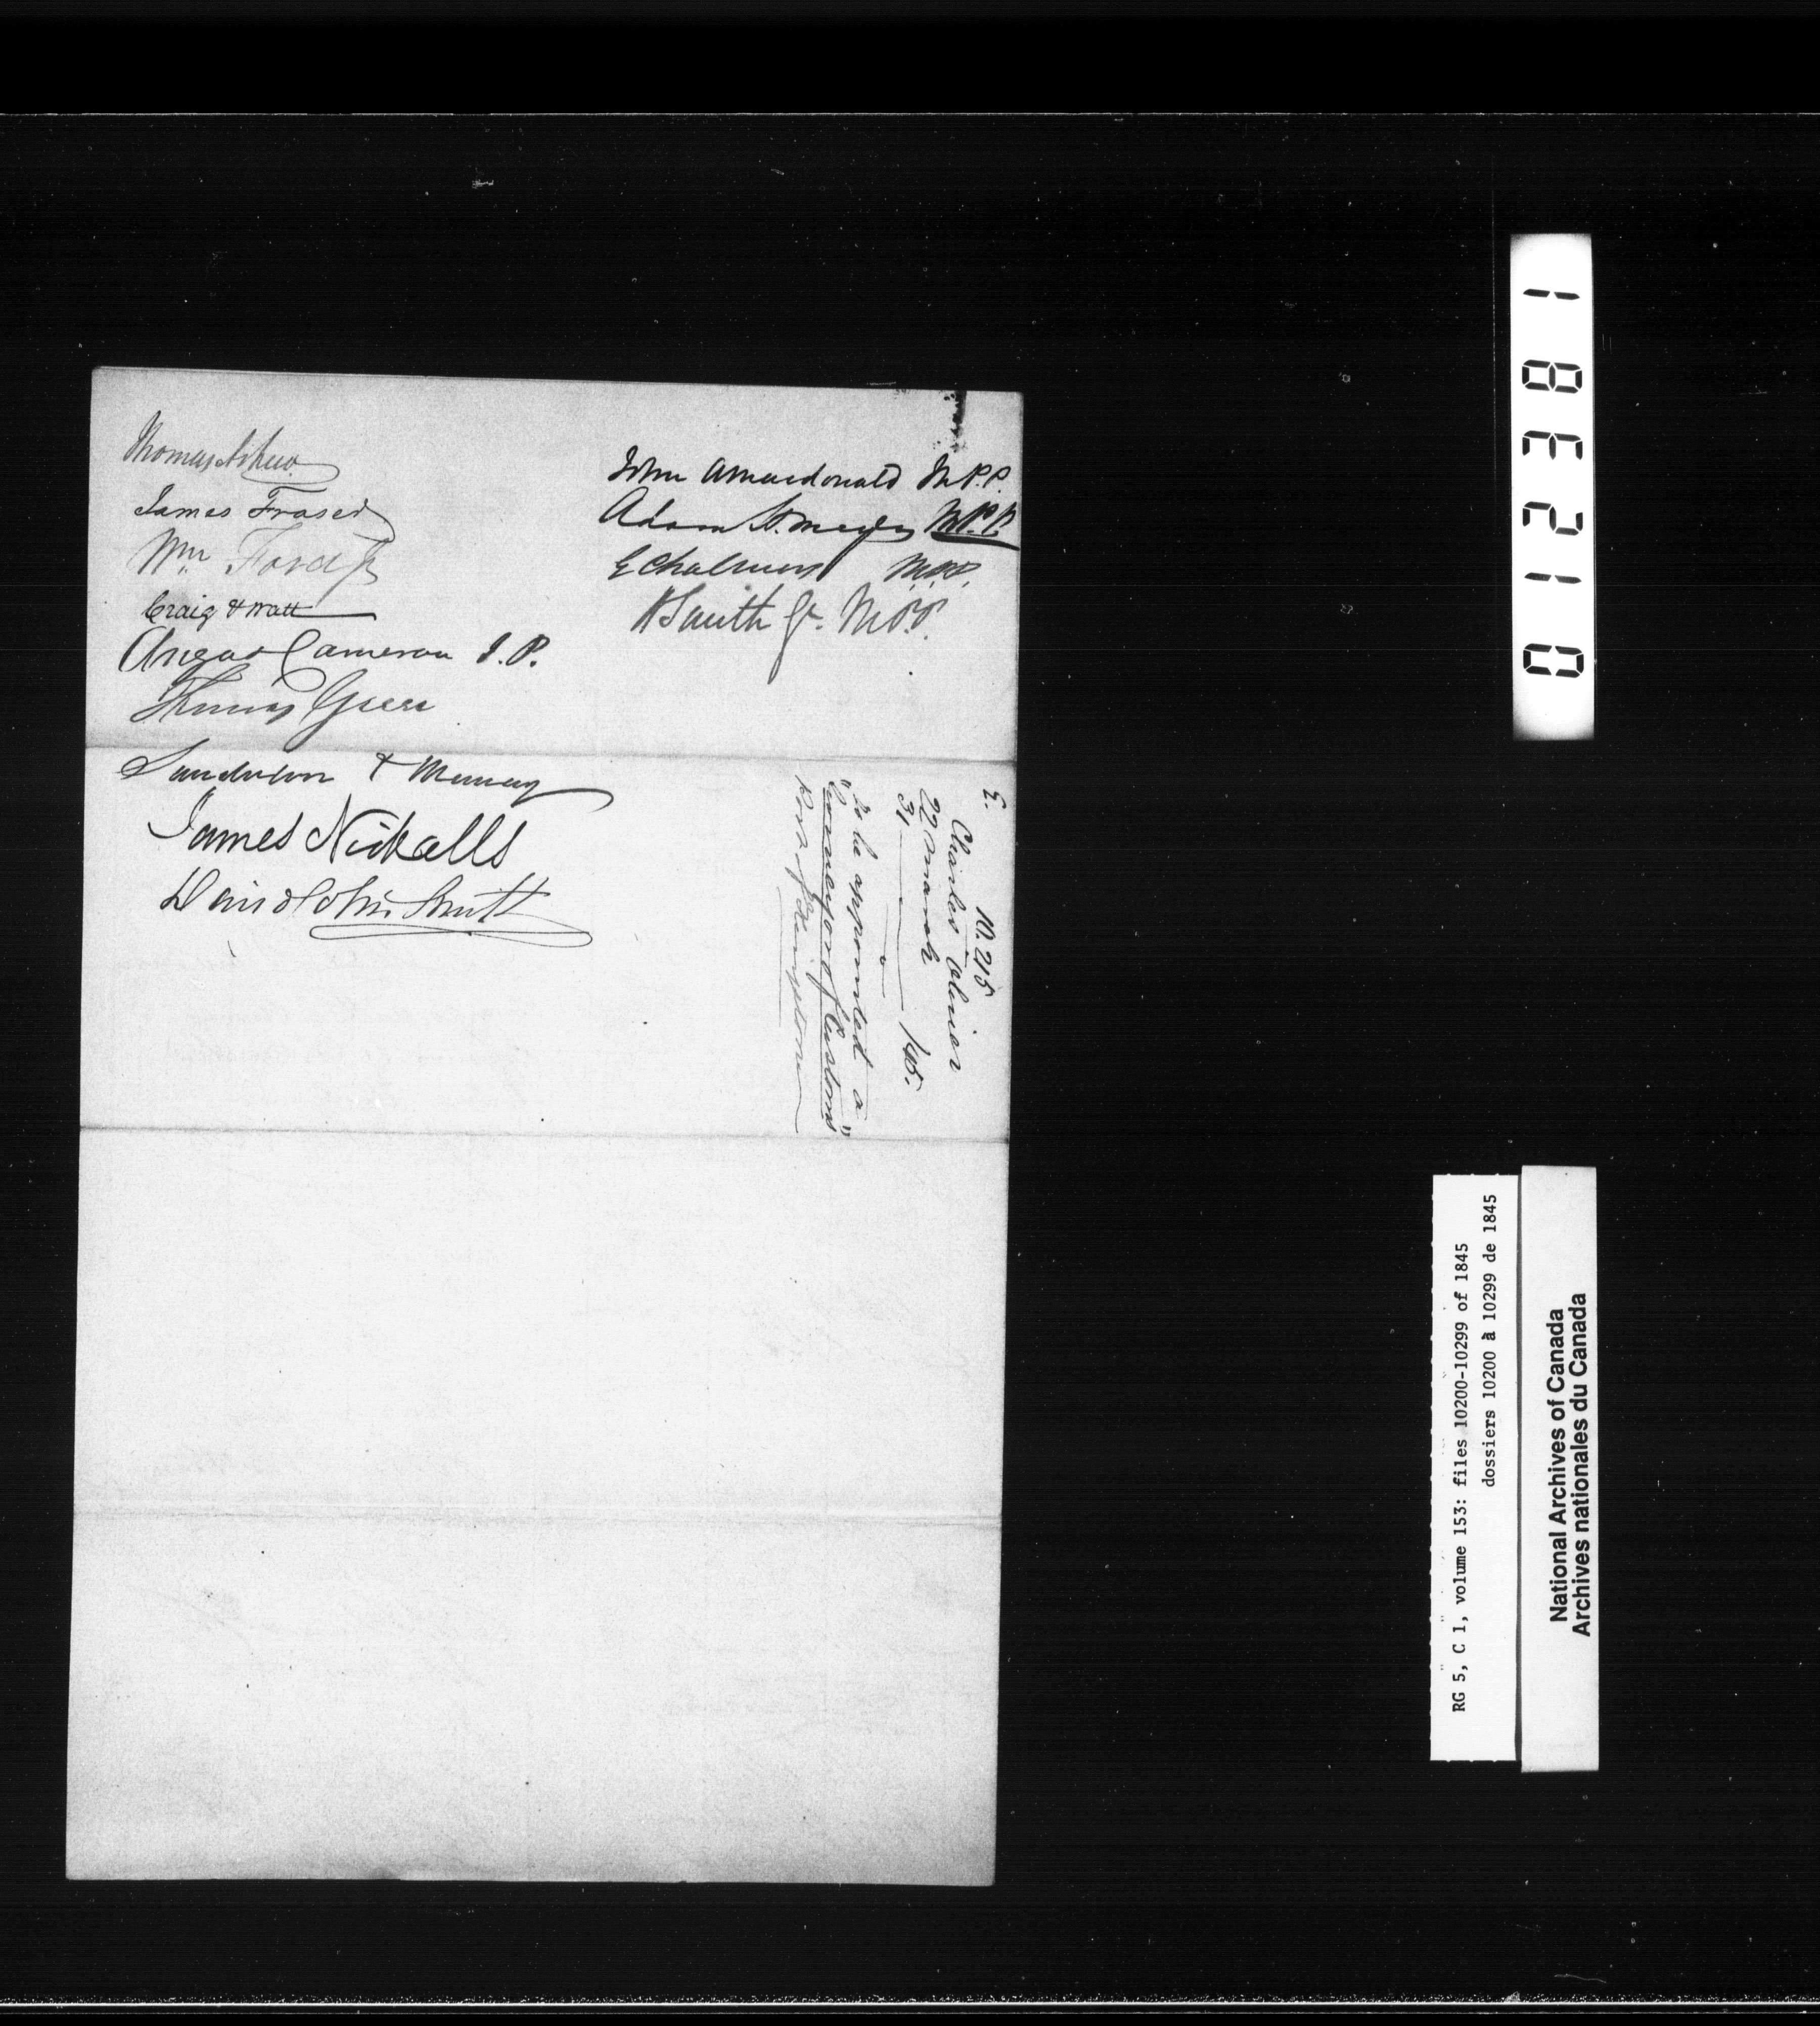 Thomas Askew
James Fraser
Wm Ford Jr
Craig & Watt
Angus Cameron J.P.
Thomas Greer
Sanderson & Murray
James Nickalls
David John Smith
John A Macdonald M.P.P.
Adam H. Meyers M.P.P.
G Chalmers M.P.P.
H Smith Jr. M.P.P.
E. 10.215
Charles Oliver
22 March
31 — " — 1845.
"To be appointed a
Surveyor of Customs"
Port of Kingston
012381
RG 5, C 1, volume 153: files 10200-10299 of 1845
dossiers 10200 à 10299 de 1845
National Archives of Canada
Archives nationales du Canada